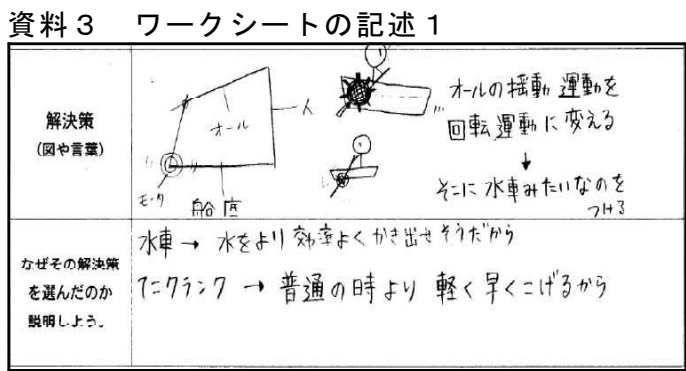 資料3 ワークシートの記述1
解決策
(図や言葉)
オール
人
モータ
船底
オールの揺動運動を
回転運動に変える
↓
そこに水車みたいなのを
つける
なぜその解決策
を選んだのか
説明しよう。
水車→水をより効率よくかき出せそうだから
てこクランク→普通の時より軽く早くこげるから